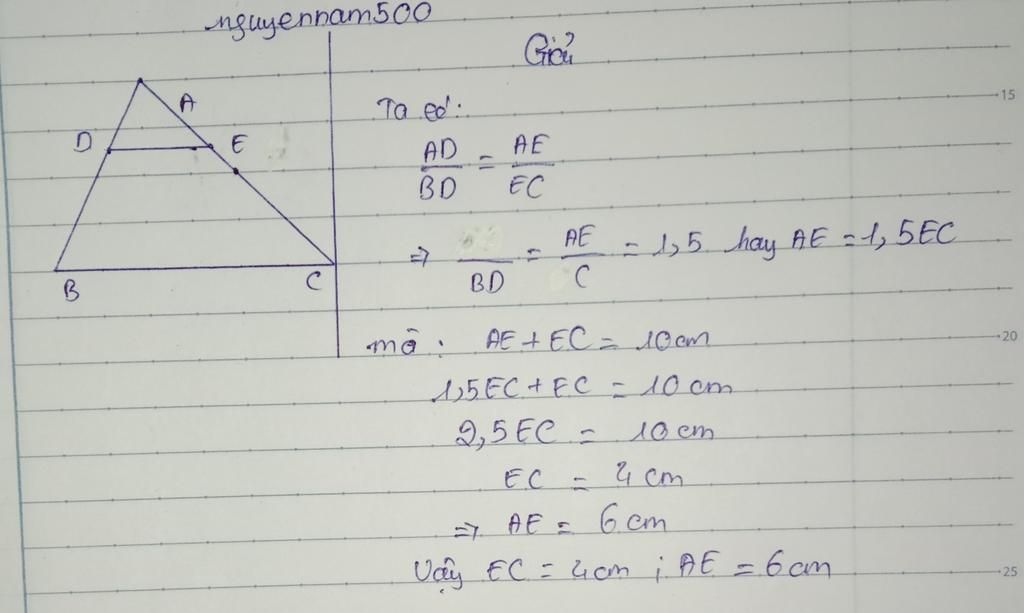 nguyennam500
Giải
A
D
E
B
C
Ta có:
AD/BD = AE/EC
=> /BD = AE/C = 1,5 hay AE = 1,5EC
mà: AE + EC = 10cm
1,5EC + EC = 10 cm
2,5EC = 10cm
EC = 4 cm
=> AE = 6 cm
Vậy EC = 4cm ; AE = 6cm
15
20
25